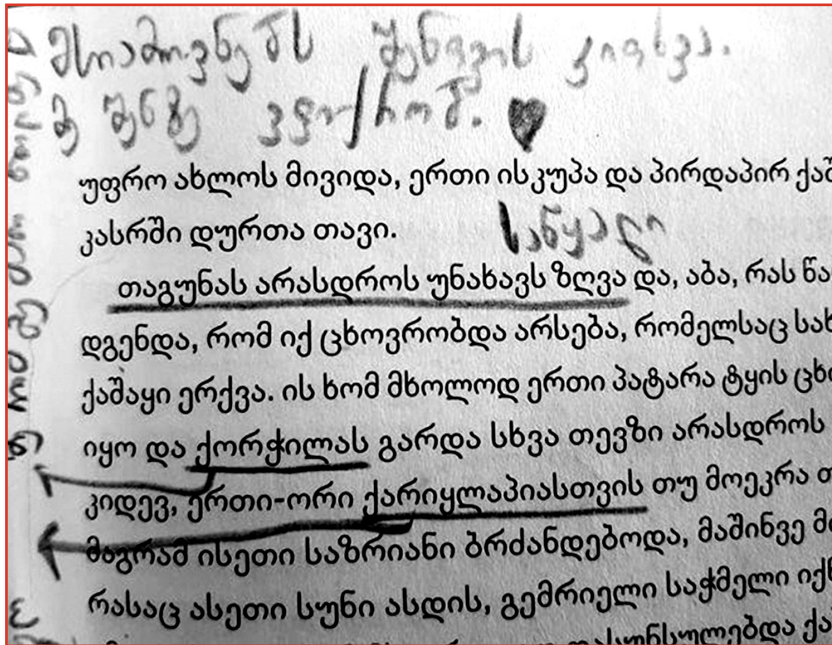 მსიამოვნებს შენთვის კითხვა.
მე შენზე ვფიქრობ.
უფრო ახლოს მივიდა, ერთი ისკუპა და პირდაპირ ქაშ
კასრში დურთა თავი.
საწყალი
თაგუნას არასდროს უნახავს ზღვა და, აბა, რას წა
დგენდა, რომ იქ ცხოვრობდა არსება, რომელსაც სახ
ქაშაყი ერქვა. ის ხომ მხოლოდ ერთი პატარა ტყის ცხ
იყო და ქორჭილას გარდა სხვა თევზი არასდროს
კიდევ, ერთი-ორი ქარიყლაპიასთვის თუ მოეკრა თ
მაგრამ ისეთი საზრიანი ბრძანდებოდა, მაშინვე მი
რასაც ასეთი სუნი ასდის, გემრიელი საჭმელი იქნ